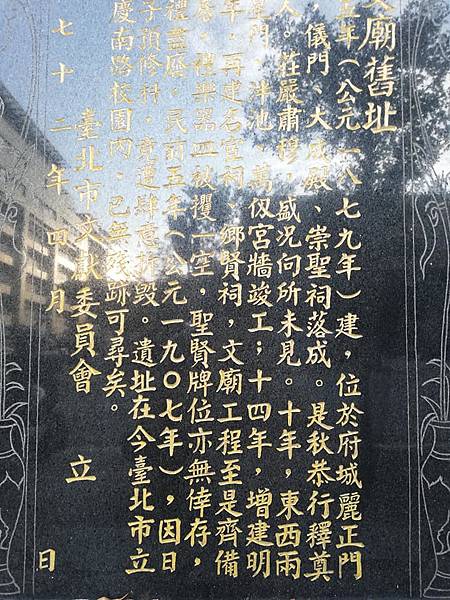 文廟舊址
五年(公元一八七九年)建,位於府城麗正門
、儀門、大成殿、崇聖祠落成。是秋恭行釋奠
人。莊嚴肅穆,盛況向所未見。十年,東西兩
星門、泮池、萬仭宮牆竣工;十四年,增建明
年,再建名宦祠、鄉賢祠,文廟工程至是齊備
,禮樂器四被攫一空,聖賢牌位亦無倖存,
禮盡廢。民前五年(公元一九〇七年),因日
子預修,竟遭肆意拆毀。遺址在今臺北市立
慶南路校園內,已無殘跡可尋矣。
臺北市文獻委員會 立
七十二年四月 日